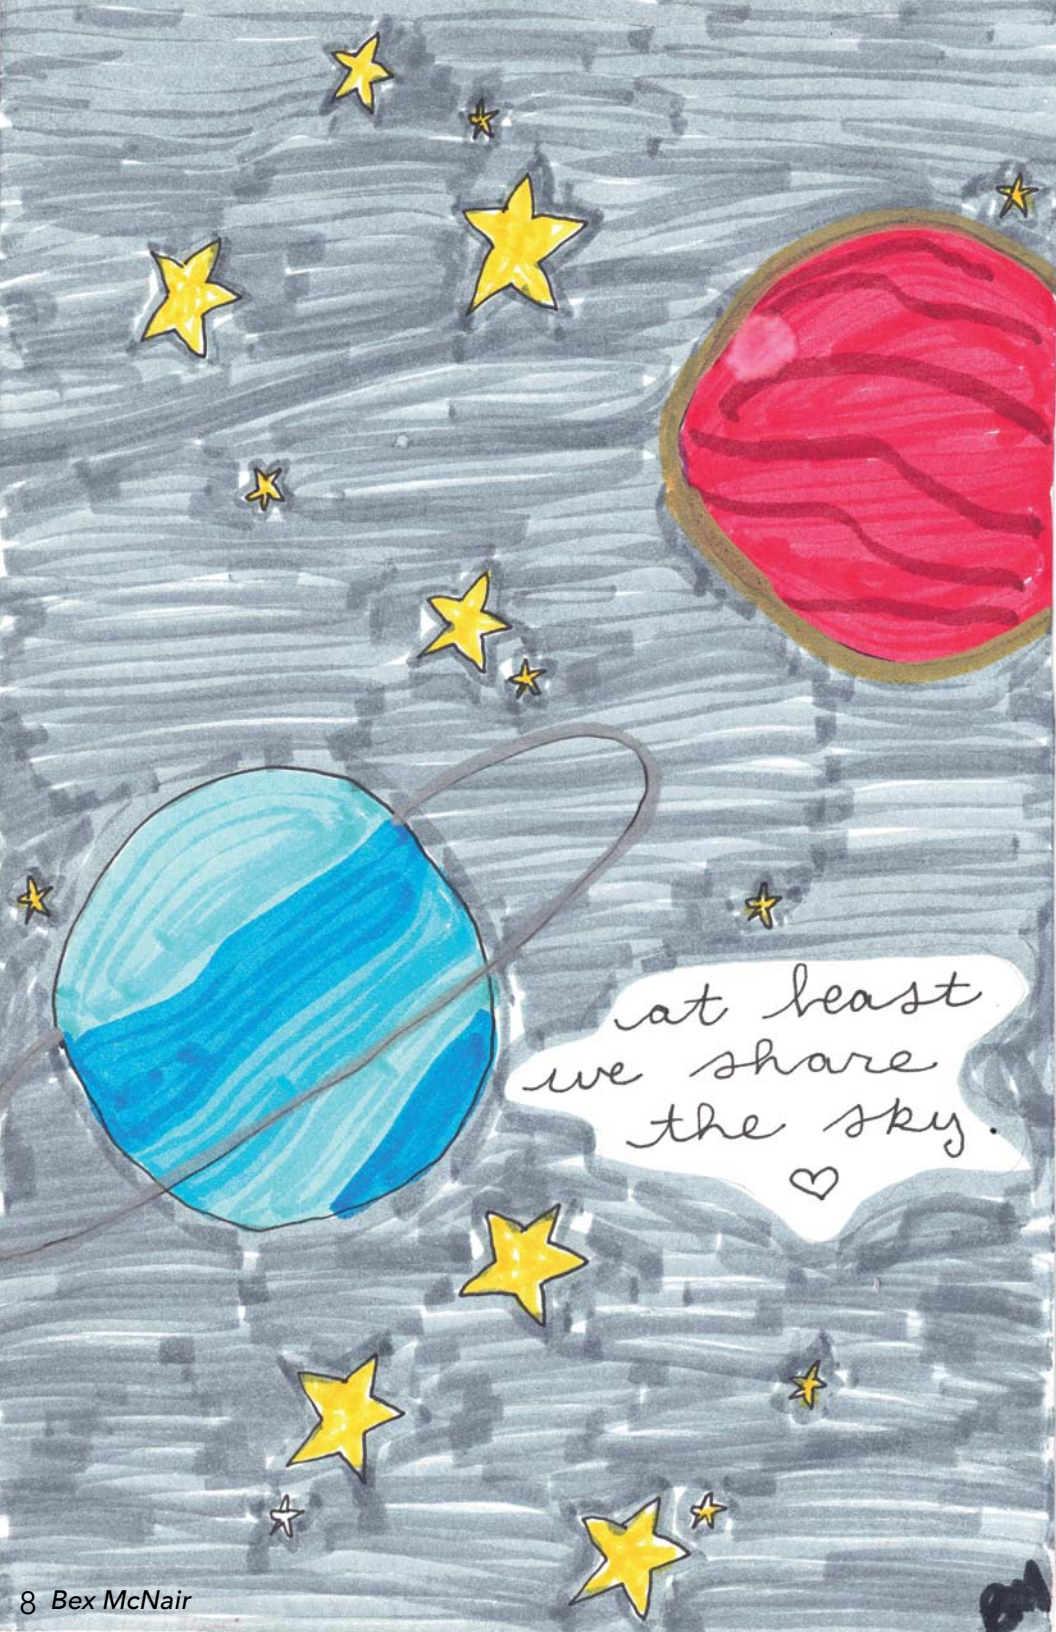 at least
we share
the sky.
♡
8 Bex McNair